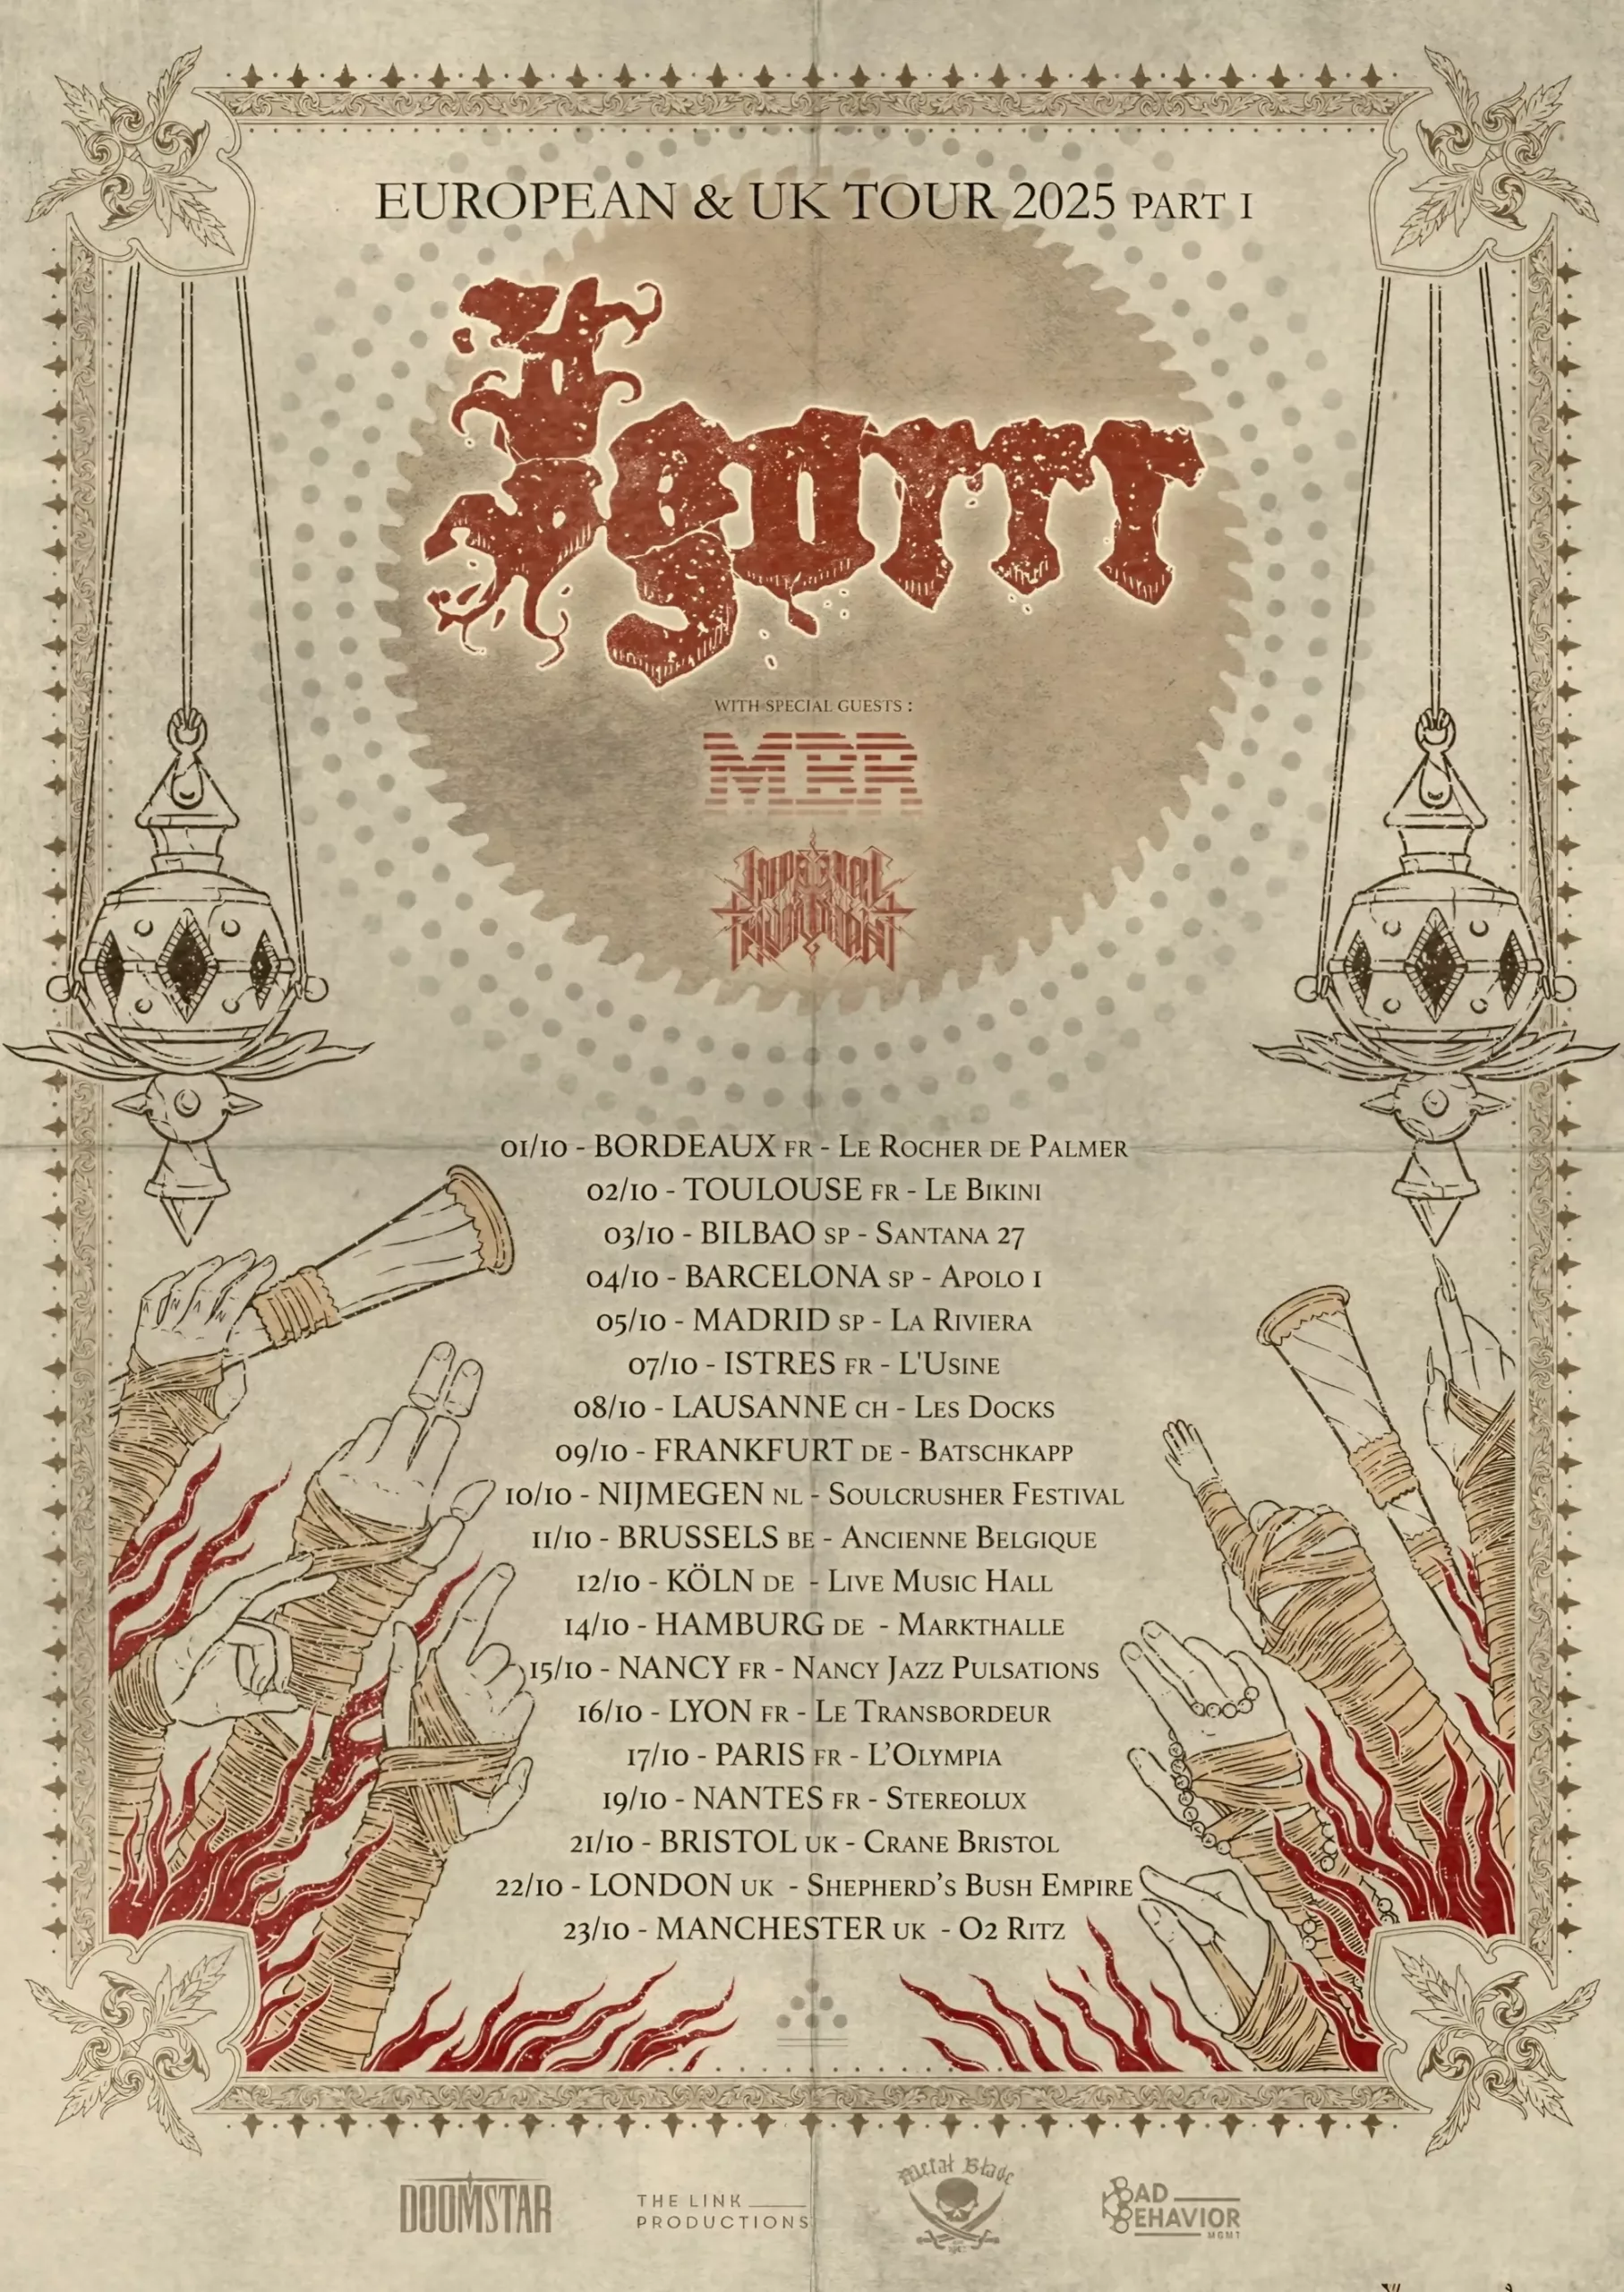 EUROPEAN & UK TOUR 2025 PART I
Igorrr
WITH SPECIAL GUESTS :
MBR
IMPERIAL TRIUMPHANT
01/10 - BORDEAUX FR - LE ROCHER DE PALMER
02/10 - TOULOUSE FR - LE BIKINI
03/10 - BILBAO SP - SANTANA 27
04/10 - BARCELONA SP - APOLO 1
05/10 - MADRID SP - LA RIVIERA
07/10 - ISTRES FR - L'USINE
08/10 - LAUSANNE CH - LES DOCKS
09/10 - FRANKFURT DE - BATSCHKAPP
10/10 - NIJMEGEN NL - SOULCRUSHER FESTIVAL
11/10 - BRUSSELS BE - ANCIENNE BELGIQUE
12/10 - KÖLN DE - LIVE MUSIC HALL
14/10 - HAMBURG DE - MARKTHALLE
15/10 - NANCY FR - NANCY JAZZ PULSATIONS
16/10 - LYON FR - LE TRANSBORDEUR
17/10 - PARIS FR - L’OLYMPIA
19/10 - NANTES FR - STEREOLUX
21/10 - BRISTOL UK - CRANE BRISTOL
22/10 - LONDON UK - SHEPHERD’S BUSH EMPIRE
23/10 - MANCHESTER UK - O2 RITZ
DOOMSTAR
THE LINK
PRODUCTIONS
Metal Blade
BAD
BEHAVIOR
MGMT